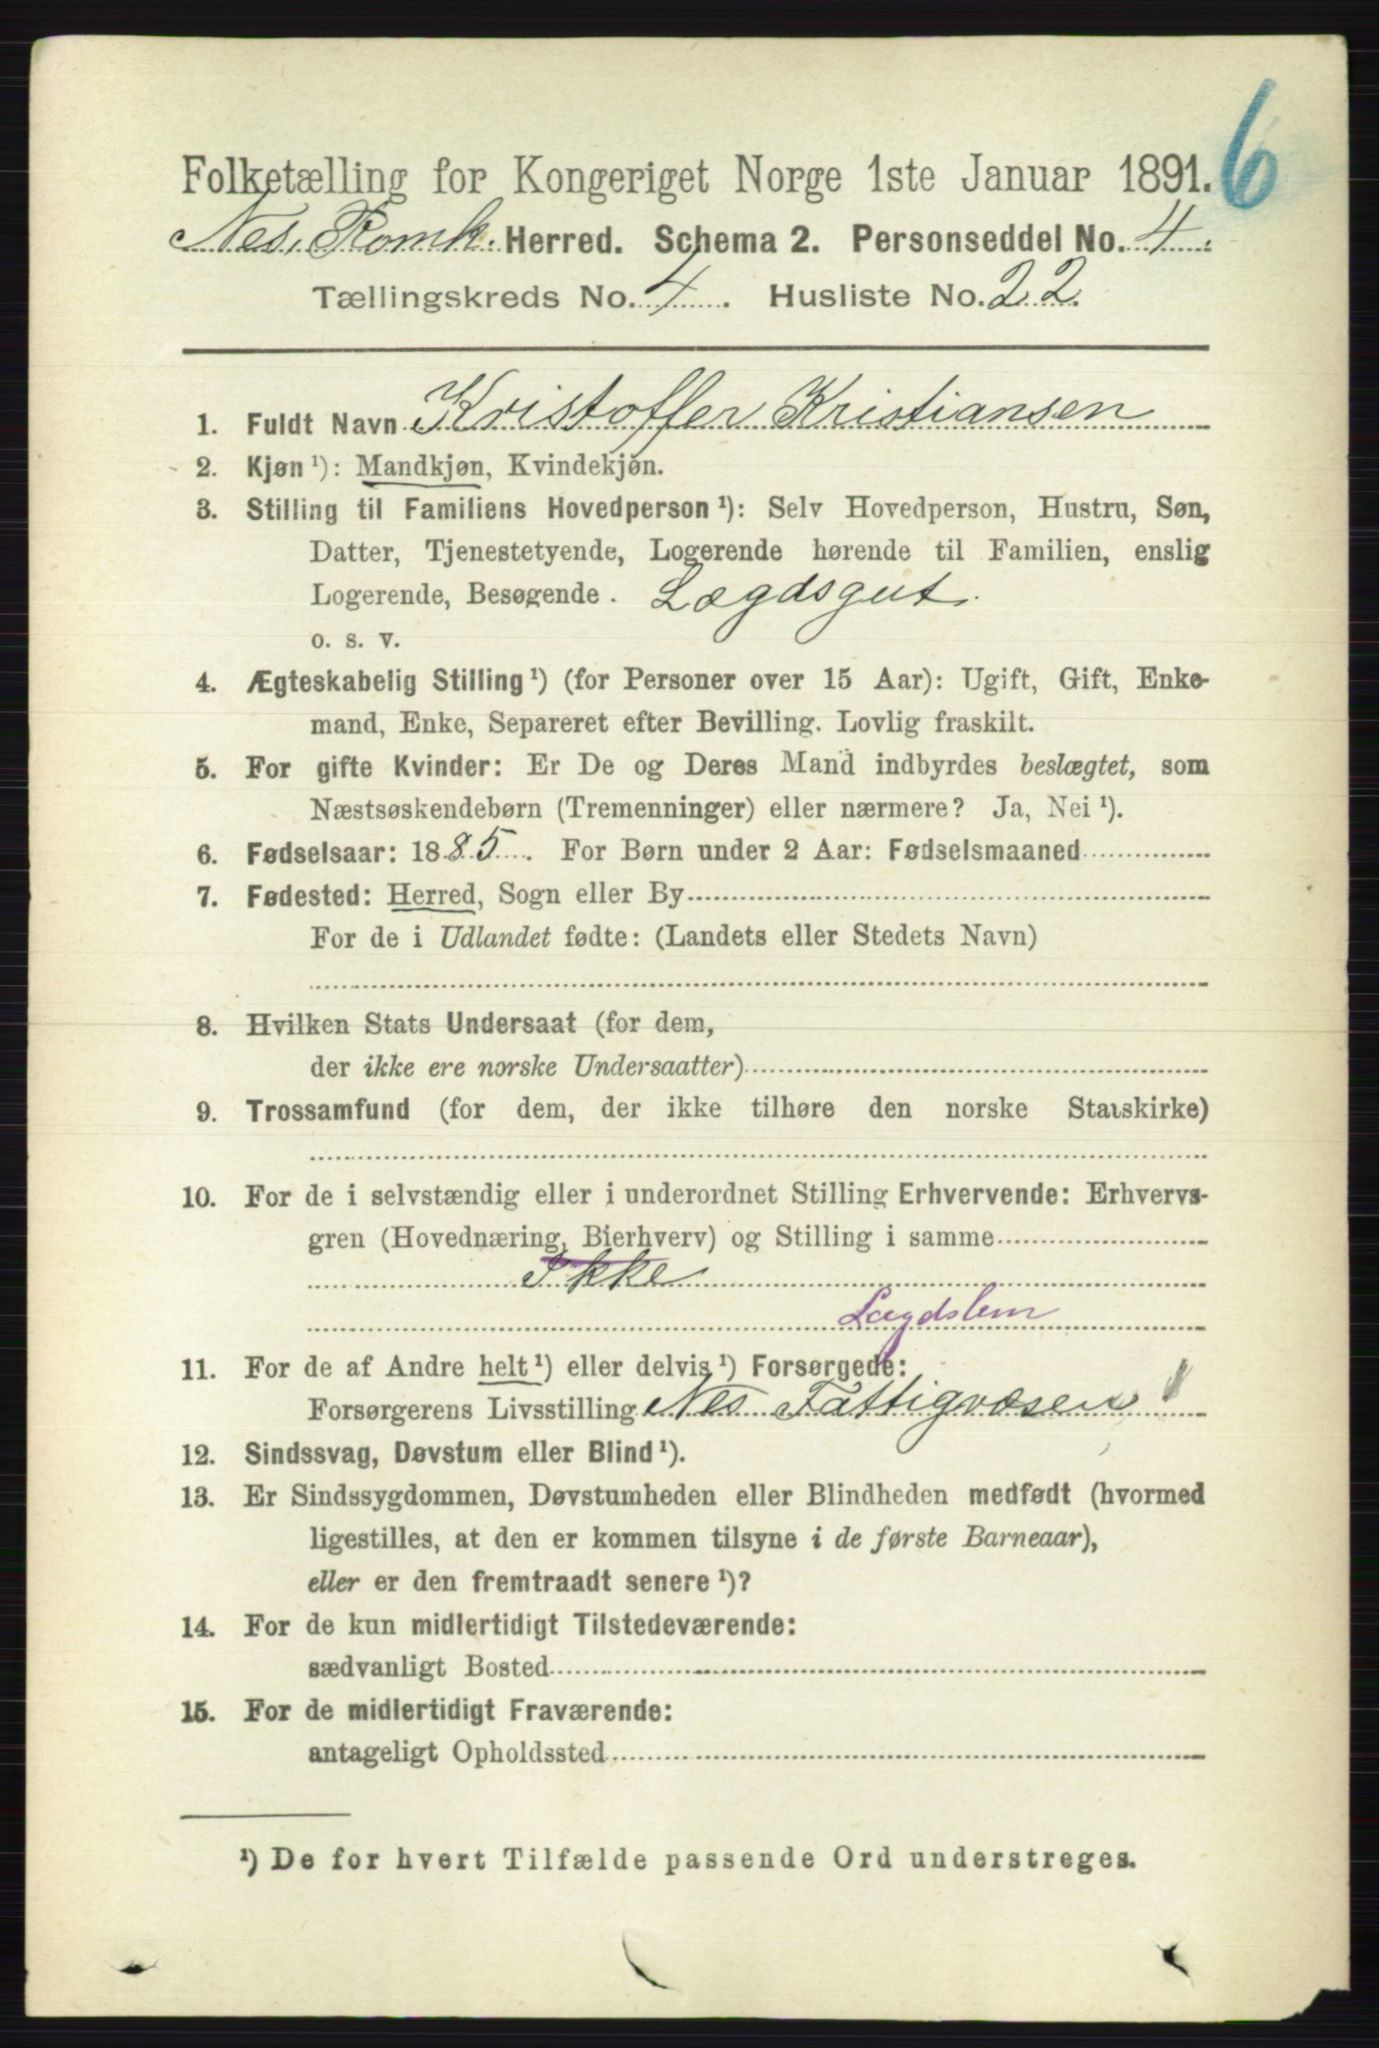 6
Folketælling for Kongeriget Norge 1ste Januar 1891.
Nes, Romk. Herred. Schema 2. Personseddel No. 4.
Tællingskreds No. 4. Husliste No. 22.
1. Fuldt Navn Kristoffer Kristiansen
2. Kjøn ¹): Mandkjøn, Kvindekjøn.
3. Stilling til Familiens Hovedperson ¹): Selv Hovedperson, Hustru, Søn,
Datter, Tjenestetyende, Logerende hørende til Familien, enslig
Logerende, Besøgende. Lægdsgut.
o. s. v.
4. Ægteskabelig Stilling ¹) (for Personer over 15 Aar): Ugift, Gift, Enke-
mand, Enke, Separeret efter Bevilling. Lovlig fraskilt.
5. For gifte Kvinder: Er De og Deres Mand indbyrdes beslægtet, som
Næstsøskendebørn (Tremenninger) eller nærmere? Ja, Nei ¹).
6. Fødselsaar: 1885. For Børn under 2 Aar: Fødselsmaaned
7. Fødested: Herred, Sogn eller By
For de i Udlandet fødte: (Landets eller Stedets Navn)
8. Hvilken Stats Undersaat (for dem,
der ikke ere norske Undersaatter)
9. Trossamfund (for dem, der ikke tilhøre den norske Statskirke)
10. For de i selvstændig eller i underordnet Stilling Erhvervende: Erhvervs-
gren (Hovednæring, Bierhverv) og Stilling i samme
Ikke
Lægdslem
11. For de af Andre helt ¹) eller delvis ¹) Forsørgede:
Forsørgerens Livsstilling Nes Fattigvæsen
12. Sindssvag, Døvstum eller Blind ¹).
13. Er Sindssygdommen, Døvstumheden eller Blindheden medfødt (hvormed
ligestilles, at den er kommen tilsyne i de første Barneaar),
eller er den fremtraadt senere ¹)?
14. For de kun midlertidigt Tilstedeværende:
sædvanligt Bosted
15. For de midlertidigt Fraværende:
antageligt Opholdssted
¹) De for hvert Tilfælde passende Ord understreges.